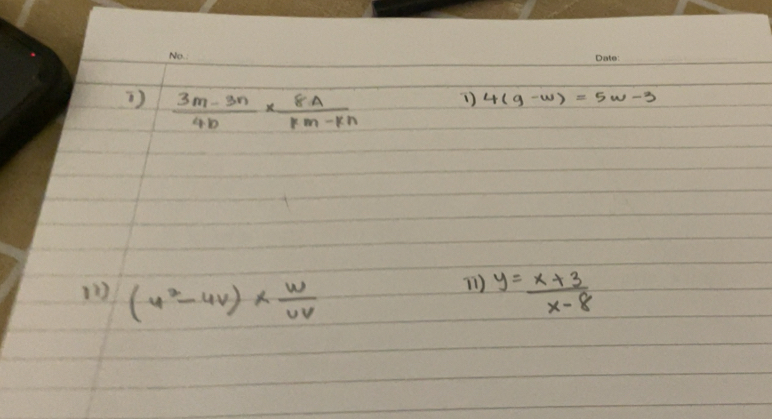 No.: Date:
i) (3m - 3n)/(4b) × (8A)/(km - kn)
i) 4(g - w) = 5w - 3
iii) (u² - 4v) × w/(uv)
ii) y = (x + 3)/(x - 8)